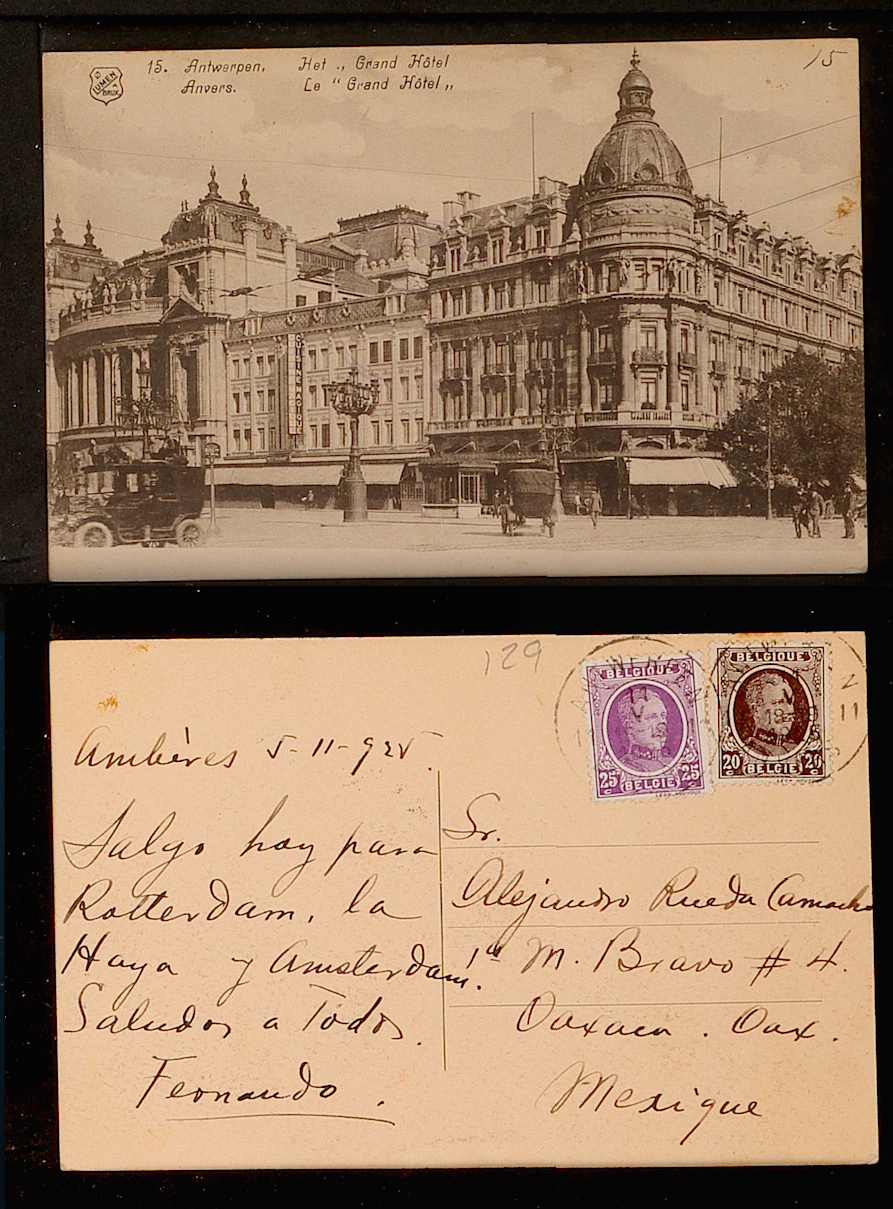 LUMEN
BRUX.
15. Antwerpen, Het „ Grand Hôtel
Anvers. Le " Grand Hôtel „
15
CUISINE MAGIQUE
129
BELGIQUE
25 25
BELGIË
BELGIQUE
20 20
BELGIË
Ambères 5-11-925.
Salgo hoy para
Rotterdam, la
Haya y Amsterdam.
Saludos a Todos.
Fernando.
Sr.
Alejandro Rueda Camacho
1a M. Bravo # 4.
Oaxaca. Oax.
Mexique